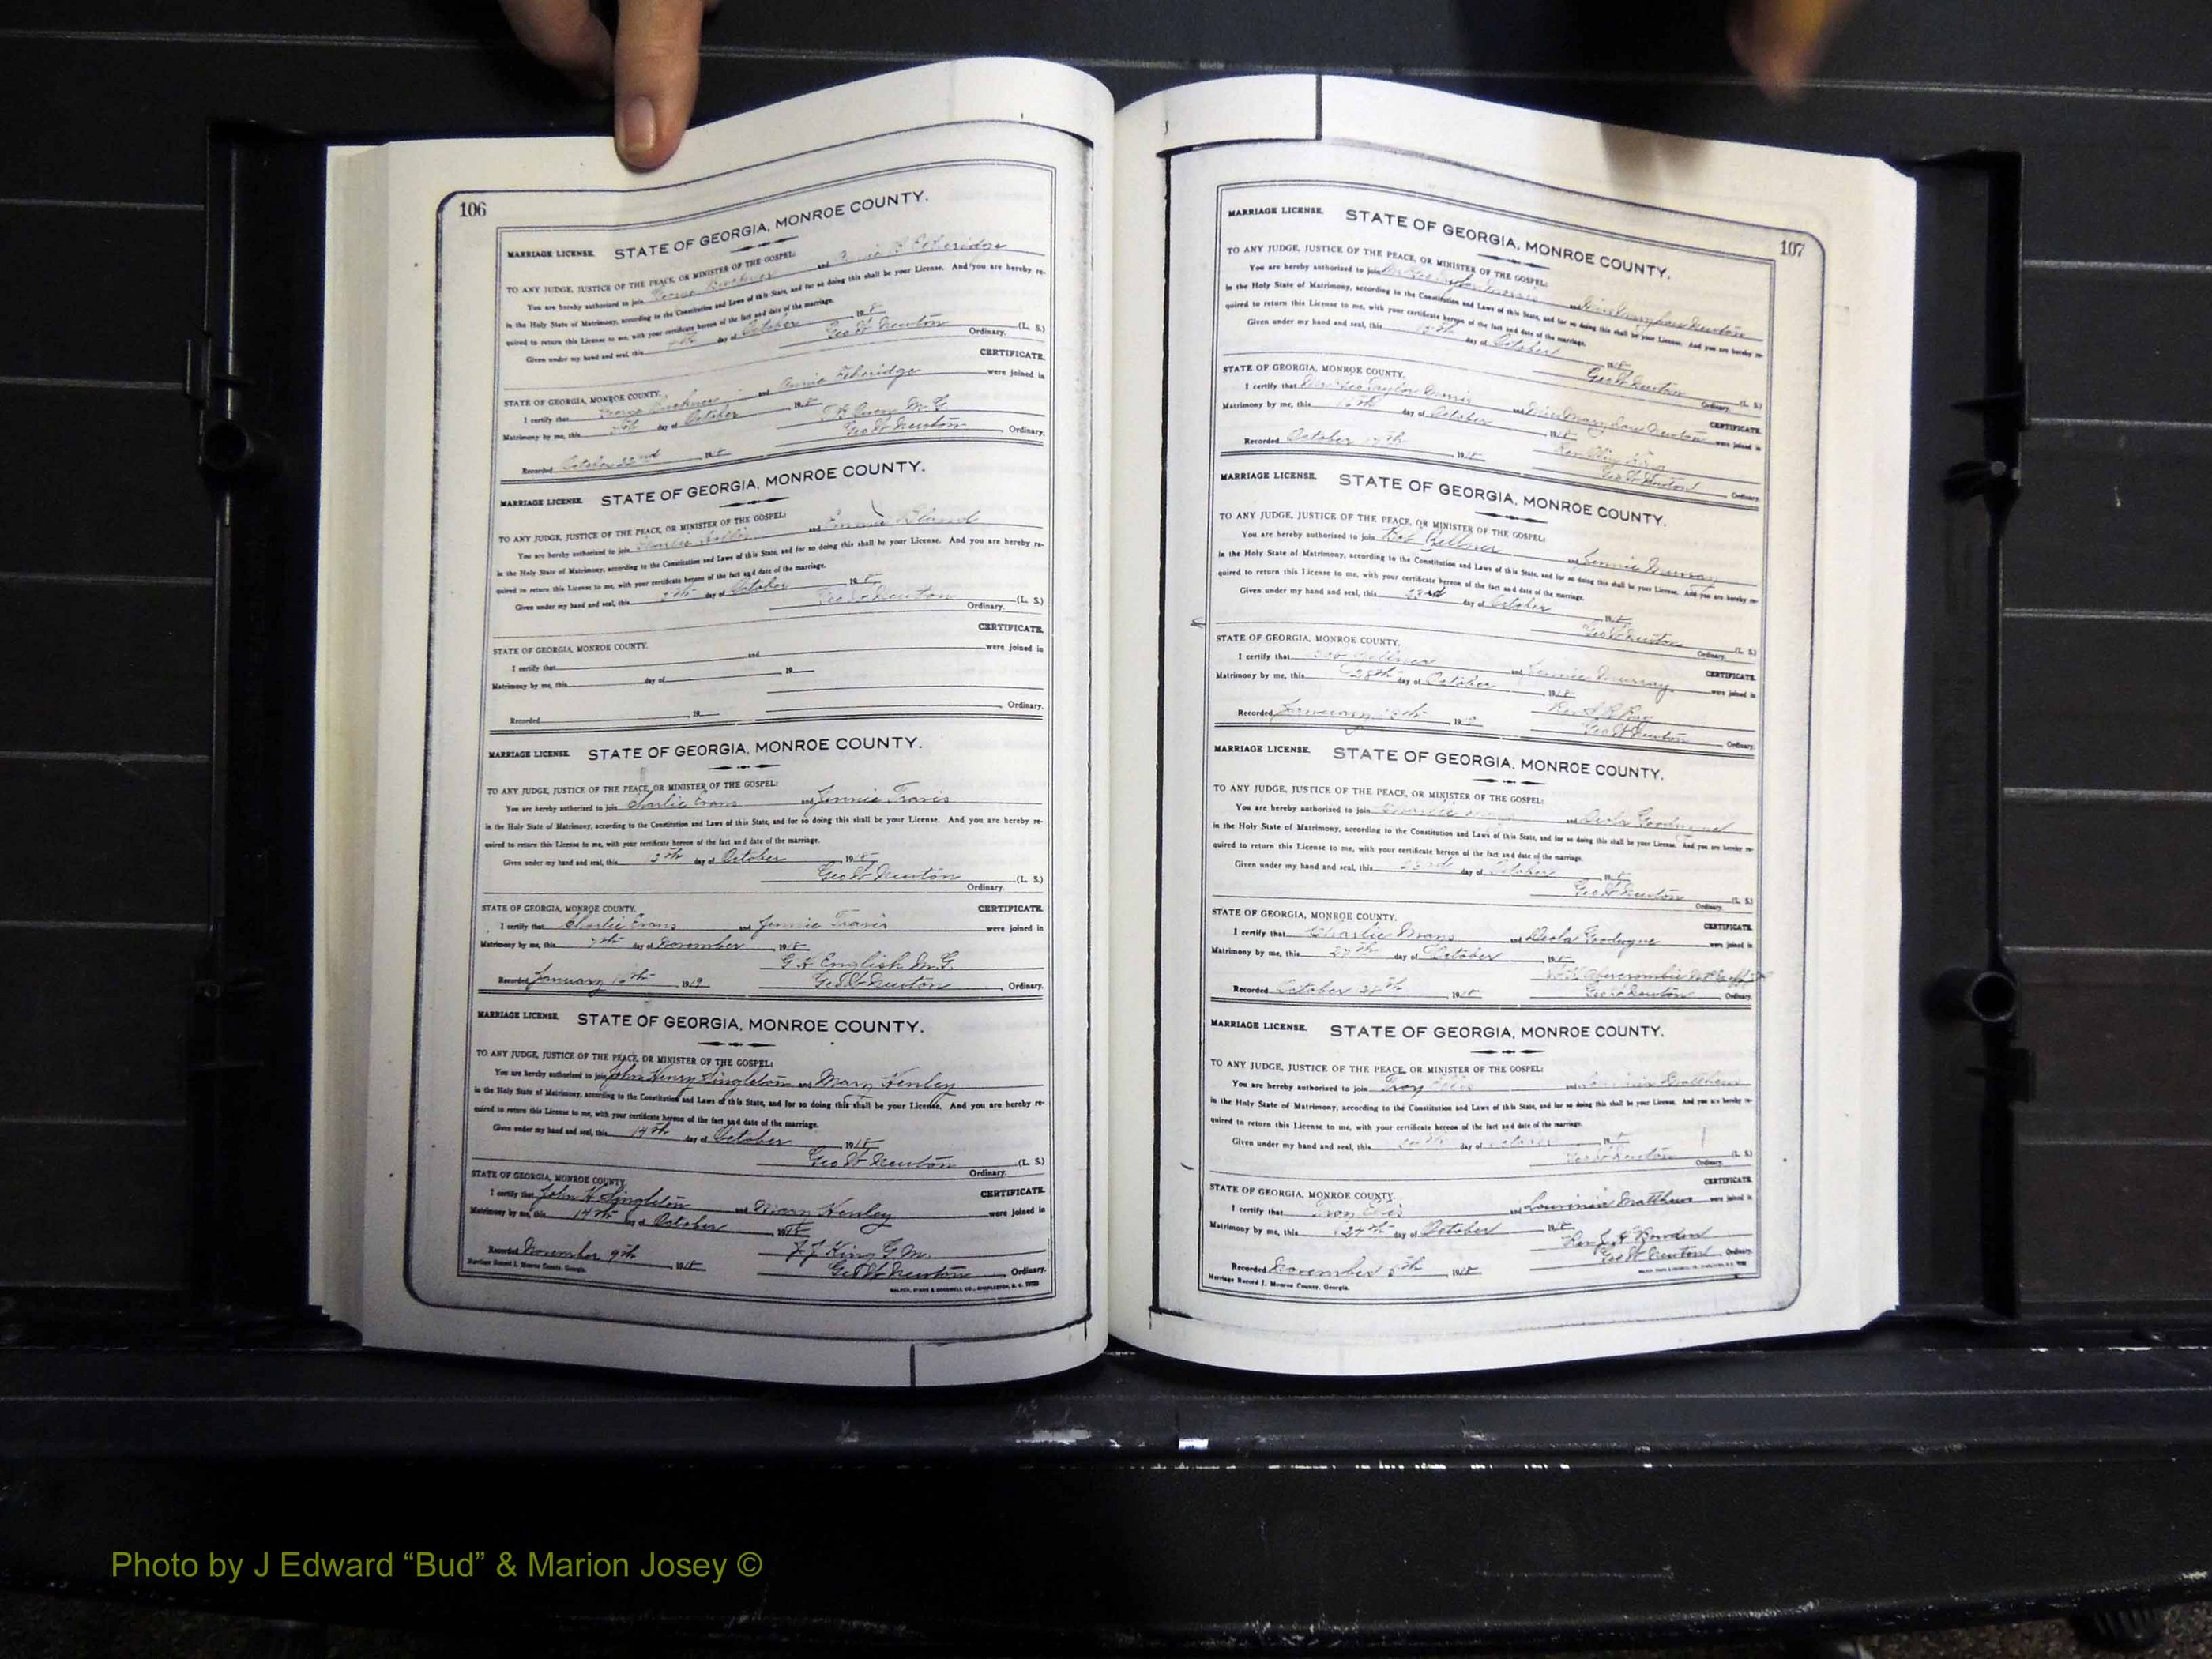 106
MARRIAGE LICENSE. STATE OF GEORGIA, MONROE COUNTY.
TO ANY JUDGE, JUSTICE OF THE PEACE, OR MINISTER OF THE GOSPEL:
You are hereby authorized to join George and Annie Etheridge
in the Holy State of Matrimony, according to the Constitution and Laws of this State, and for so doing this shall be your License. And you are hereby re-
quired to return this License to me, with your certificate hereon of the fact and date of the marriage.
Given under my hand and seal, this day of October 1918
Geo W Newton (L. S.)
Ordinary.
CERTIFICATE.
STATE OF GEORGIA, MONROE COUNTY.
I certify that George and Annie Etheridge were joined in
Matrimony by me, this day of October, 1918
M. G.
Recorded October 22nd, 1918 Geo W Newton, Ordinary.
MARRIAGE LICENSE. STATE OF GEORGIA, MONROE COUNTY.
TO ANY JUDGE, JUSTICE OF THE PEACE, OR MINISTER OF THE GOSPEL:
You are hereby authorized to join Charlie and Bland
in the Holy State of Matrimony, according to the Constitution and Laws of this State, and for so doing this shall be your License. And you are hereby re-
quired to return this License to me, with your certificate hereon of the fact and date of the marriage.
Given under my hand and seal, this day of October 1918
Geo W Newton (L. S.)
Ordinary.
CERTIFICATE.
STATE OF GEORGIA, MONROE COUNTY.
I certify that and were joined in
Matrimony by me, this day of, 19
Recorded, 19, Ordinary.
MARRIAGE LICENSE. STATE OF GEORGIA, MONROE COUNTY.
TO ANY JUDGE, JUSTICE OF THE PEACE, OR MINISTER OF THE GOSPEL:
You are hereby authorized to join Charlie Evans and Jennie Travis
in the Holy State of Matrimony, according to the Constitution and Laws of this State, and for so doing this shall be your License. And you are hereby re-
quired to return this License to me, with your certificate hereon of the fact and date of the marriage.
Given under my hand and seal, this day of October 1918
Geo W Newton (L. S.)
Ordinary.
STATE OF GEORGIA, MONROE COUNTY. CERTIFICATE.
I certify that Charlie Evans and Jennie Travis were joined in
Matrimony by me, this 7th day of November, 1918
G H English M. G.
Recorded January 16th, 1919 Geo W Newton, Ordinary.
MARRIAGE LICENSE. STATE OF GEORGIA, MONROE COUNTY.
TO ANY JUDGE, JUSTICE OF THE PEACE, OR MINISTER OF THE GOSPEL:
You are hereby authorized to join John Henry Singleton and Mary Henley
in the Holy State of Matrimony, according to the Constitution and Laws of this State, and for so doing this shall be your License. And you are hereby re-
quired to return this License to me, with your certificate hereon of the fact and date of the marriage.
Given under my hand and seal, this 14th day of October 1918
Geo W Newton (L. S.)
Ordinary.
STATE OF GEORGIA, MONROE COUNTY. CERTIFICATE.
I certify that John H Singleton and Mary Henley were joined in
Matrimony by me, this 14th day of October, 1918
J J King G. M.
Recorded November 9th, 1918 Geo W Newton, Ordinary.
Marriage Record J, Monroe County, Georgia.
107
MARRIAGE LICENSE. STATE OF GEORGIA, MONROE COUNTY.
TO ANY JUDGE, JUSTICE OF THE PEACE, OR MINISTER OF THE GOSPEL:
You are hereby authorized to join Mr Geo Taylor Morris and Miss Mary Lou Newton
in the Holy State of Matrimony, according to the Constitution and Laws of this State, and for so doing this shall be your License. And you are hereby re-
quired to return this License to me, with your certificate hereon of the fact and date of the marriage.
Given under my hand and seal, this 15th day of October 1918
Geo W Newton (L. S.)
Ordinary.
STATE OF GEORGIA, MONROE COUNTY. CERTIFICATE.
I certify that Mr Geo Taylor Morris and Miss Mary Lou Newton were joined in
Matrimony by me, this 16th day of October, 1918
Rev
Recorded October 17th, 1918 Geo W Newton, Ordinary.
MARRIAGE LICENSE. STATE OF GEORGIA, MONROE COUNTY.
TO ANY JUDGE, JUSTICE OF THE PEACE, OR MINISTER OF THE GOSPEL:
You are hereby authorized to join Bob and Jennie Murray
in the Holy State of Matrimony, according to the Constitution and Laws of this State, and for so doing this shall be your License. And you are hereby re-
quired to return this License to me, with your certificate hereon of the fact and date of the marriage.
Given under my hand and seal, this 23rd day of October 1918
Geo W Newton (L. S.)
Ordinary.
STATE OF GEORGIA, MONROE COUNTY. CERTIFICATE.
I certify that Bob and Jennie Murray were joined in
Matrimony by me, this 28th day of October, 1918
Rev
Recorded January, 1919 Geo W Newton, Ordinary.
MARRIAGE LICENSE. STATE OF GEORGIA, MONROE COUNTY.
TO ANY JUDGE, JUSTICE OF THE PEACE, OR MINISTER OF THE GOSPEL:
You are hereby authorized to join Charlie and Deola
in the Holy State of Matrimony, according to the Constitution and Laws of this State, and for so doing this shall be your License. And you are hereby re-
quired to return this License to me, with your certificate hereon of the fact and date of the marriage.
Given under my hand and seal, this 23rd day of October 1918
Geo W Newton (L. S.)
Ordinary.
STATE OF GEORGIA, MONROE COUNTY. CERTIFICATE.
I certify that Charlie and Deola were joined in
Matrimony by me, this 27th day of October, 1918
Abercrombie
Recorded October 28th, 1918 Geo W Newton, Ordinary.
MARRIAGE LICENSE. STATE OF GEORGIA, MONROE COUNTY.
TO ANY JUDGE, JUSTICE OF THE PEACE, OR MINISTER OF THE GOSPEL:
You are hereby authorized to join Troy Ellis and Matthews
in the Holy State of Matrimony, according to the Constitution and Laws of this State, and for so doing this shall be your License. And you are hereby re-
quired to return this License to me, with your certificate hereon of the fact and date of the marriage.
Given under my hand and seal, this day of October 1918
Geo W Newton (L. S.)
Ordinary.
CERTIFICATE.
STATE OF GEORGIA, MONROE COUNTY.
I certify that and Matthews were joined in
Matrimony by me, this day of October, 1918
Rev Bowden
Recorded November 5th, 1918 Geo W Newton, Ordinary.
Marriage Record J, Monroe County, Georgia.
Photo by J Edward “Bud” & Marion Josey ©